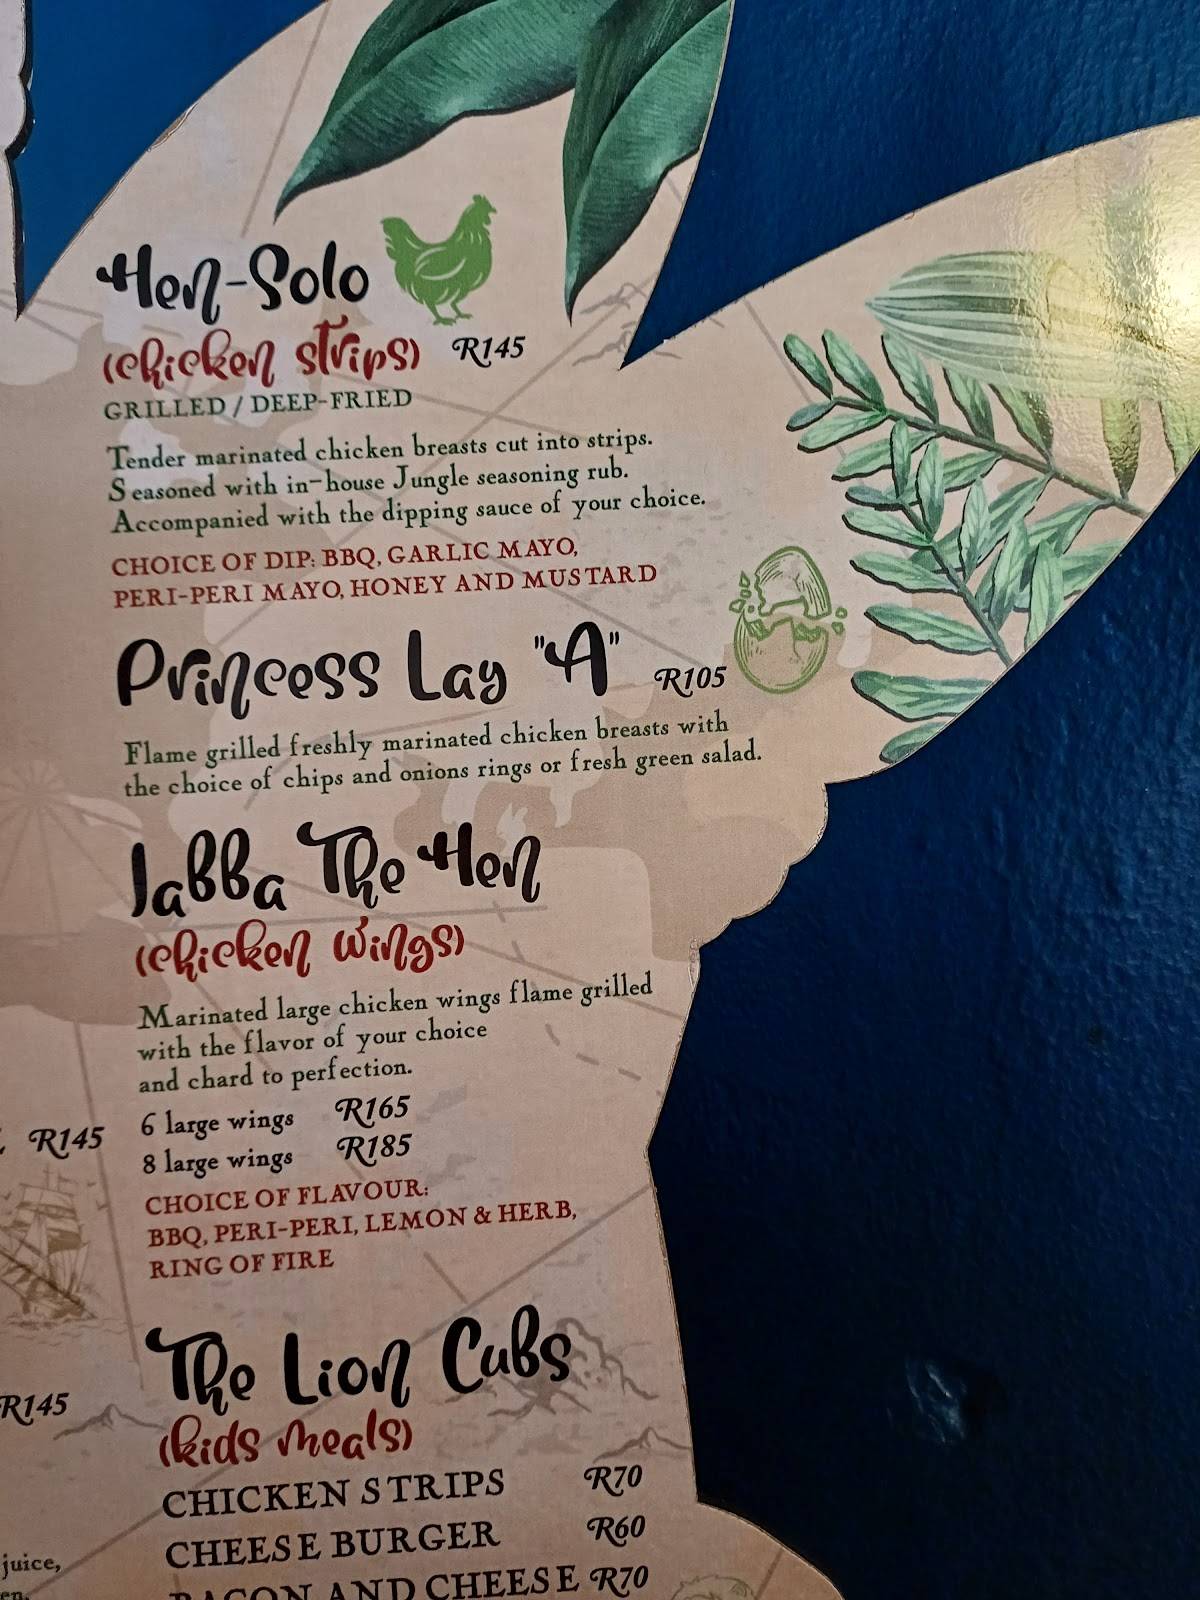 Hen-Solo
(chicken strips) R145
GRILLED / DEEP-FRIED
Tender marinated chicken breasts cut into strips.
Seasoned with in-house Jungle seasoning rub.
Accompanied with the dipping sauce of your choice.
CHOICE OF DIP: BBQ, GARLIC MAYO,
PERI-PERI MAYO, HONEY AND MUSTARD
Princess Lay "A" R105
Flame grilled freshly marinated chicken breasts with
the choice of chips and onions rings or fresh green salad.
Jabba The Hen
(chicken wings)
Marinated large chicken wings flame grilled
with the flavor of your choice
and chard to perfection.
6 large wings R165
8 large wings R185
CHOICE OF FLAVOUR:
BBQ, PERI-PERI, LEMON & HERB,
RING OF FIRE
The Lion Cubs
(kids meals)
CHICKEN STRIPS R70
CHEESE BURGER R60
BACON AND CHEESE R70
R145
R145
juice,